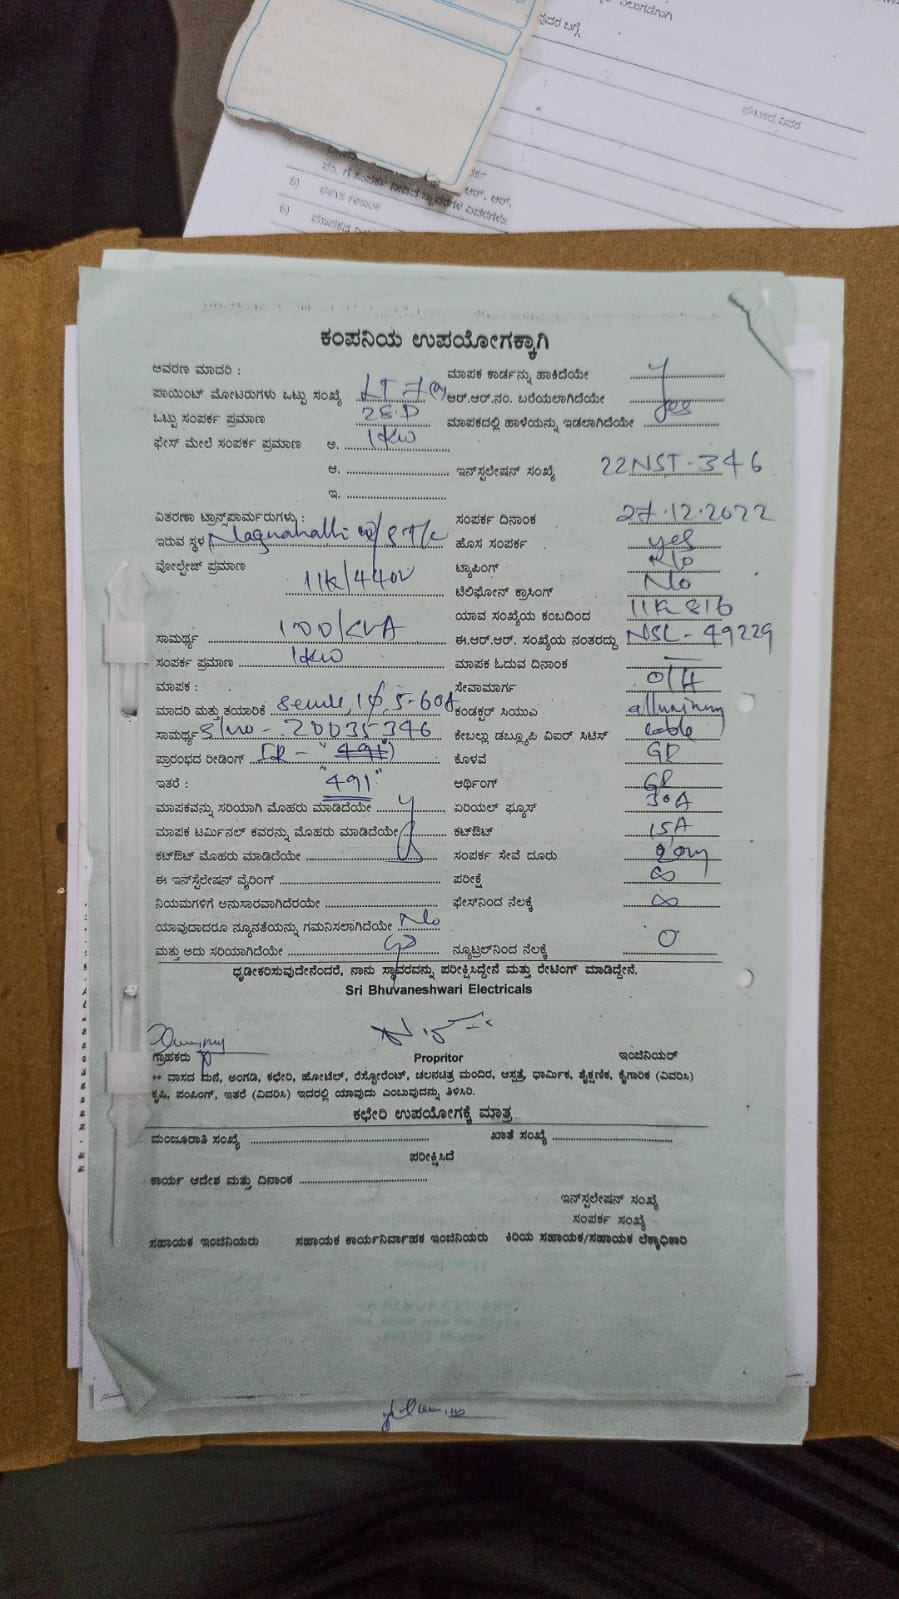 ವರ ಬಗ್ಗೆ
ಘಟಕದ ವಿವರ
ಆರ್. ಆರ್.
5)
6)
ಕಂಪನಿಯ ಉಪಯೋಗಕ್ಕಾಗಿ
ಆವರಣ ಮಾದರಿ : ಮಾಪಕ ಕಾರ್ಡನ್ನು ಹಾಕಿದೆಯೇ y
ಪಾಯಿಂಟ್ ಮೋಟರುಗಳು ಒಟ್ಟು ಸಂಖ್ಯೆ LT 7(a) ಆರ್.ಆರ್.ನಂ. ಬರೆಯಲಾಗಿದೆಯೇ
ಒಟ್ಟು ಸಂಪರ್ಕ ಪ್ರಮಾಣ ಮಾಪಕದಲ್ಲಿ ಹಾಳೆಯನ್ನು ಇಡಲಾಗಿದೆಯೇ yes
ಫೇಸ್ ಮೇಲೆ ಸಂಪರ್ಕ ಪ್ರಮಾಣ ಅ. 1kw
ಆ. ಇನ್‌ಸ್ಟಲೇಷನ್ ಸಂಖ್ಯೆ 22NST-346
ಇ.
ವಿತರಣಾ ಟ್ರಾನ್ಸ್‌ಫಾರ್ಮರುಗಳು : ಸಂಪರ್ಕ ದಿನಾಂಕ 27.12.2022
ಇರುವ ಸ್ಥಳ Nagnahalli ಹೊಸ ಸಂಪರ್ಕ yes
ವೋಲ್ಟೇಜ್ ಪ್ರಮಾಣ ಟ್ಯಾಪಿಂಗ್ No
11k/440v ಟೆಲಿಫೋನ್ ಕ್ರಾಸಿಂಗ್ No
ಯಾವ ಸಂಖ್ಯೆಯ ಕಂಬದಿಂದ
ಸಾಮರ್ಥ್ಯ 100/KVA ಈ.ಆರ್.ಆರ್. ಸಂಖ್ಯೆಯ ನಂತರದ್ದು NSL-49229
ಸಂಪರ್ಕ ಪ್ರಮಾಣ 1kw ಮಾಪಕ ಓದುವ ದಿನಾಂಕ
ಮಾಪಕ : ಸೇವಾಮಾರ್ಗ O/H
ಮಾದರಿ ಮತ್ತು ತಯಾರಿಕೆ 1ɸ, 5-60A ಕಂಡಕ್ಟರ್ ಸಿಯುವಿ
ಸಾಮರ್ಥ್ಯ S/no - 20035346 ಕೇಬಲ್ಲು ಡಬ್ಲ್ಯೂಪಿ ವಿಐರ್ ಸಿಟಿಸ್ cable
ಪ್ರಾರಂಭದ ರೀಡಿಂಗ್ IR - "491" ಕೊಳವೆ
ಇತರೆ : "491" ಆರ್ಥಿಂಗ್
ಮಾಪಕವನ್ನು ಸರಿಯಾಗಿ ಮೊಹರು ಮಾಡಿದೆಯೇ y ಏರಿಯಲ್ ಫ್ಯೂಸ್ 30A
ಮಾಪಕ ಟರ್ಮಿನಲ್ ಕವರನ್ನು ಮೊಹರು ಮಾಡಿದೆಯೇ ಕಟ್‌ಔಟ್ 15A
ಕಟ್‌ಔಟ್ ಮೊಹರು ಮಾಡಿದೆಯೇ ಸಂಪರ್ಕ ಸೇವೆ ದೂರು
ಈ ಇನ್‌ಸ್ಟಲೇಷನ್ ವೈರಿಂಗ್ ಪರೀಕ್ಷೆ ∞
ನಿಯಮಗಳಿಗೆ ಅನುಸಾರವಾಗಿದೆರಯೇ ಫೇಸ್‌ನಿಂದ ನೆಲಕ್ಕೆ ∞
ಯಾವುದಾದರೂ ನ್ಯೂನತೆಯನ್ನು ಗಮನಿಸಲಾಗಿದೆಯೇ No
ಮತ್ತು ಅದು ಸರಿಯಾಗಿದೆಯೇ ನ್ಯೂಟ್ರಲ್‌ನಿಂದ ನೆಲಕ್ಕೆ 0
ಧೃಢೀಕರಿಸುವುದೇನೆಂದರೆ, ನಾನು ಸ್ಥಾವರವನ್ನು ಪರೀಕ್ಷಿಸಿದ್ದೇನೆ ಮತ್ತು ರೇಟಿಂಗ್ ಮಾಡಿದ್ದೇನೆ.
Sri Bhuvaneshwari Electricals
ಗ್ರಾಹಕರು Propritor ಇಂಜಿನಿಯರ್
** ವಾಸದ ಮನೆ, ಅಂಗಡಿ, ಕಛೇರಿ, ಹೋಟೆಲ್, ರೆಸ್ಟೋರೆಂಟ್, ಚಲನಚಿತ್ರ ಮಂದಿರ, ಆಸ್ಪತ್ರೆ, ಧಾರ್ಮಿಕ, ಶೈಕ್ಷಣಿಕ, ಕೈಗಾರಿಕ (ವಿವರಿಸಿ)
ಕೃಷಿ, ಪಂಪಿಂಗ್, ಇತರೆ (ವಿವರಿಸಿ) ಇದರಲ್ಲಿ ಯಾವುದು ಎಂಬುವುದನ್ನು ತಿಳಿಸಿರಿ.
ಕಛೇರಿ ಉಪಯೋಗಕ್ಕೆ ಮಾತ್ರ
ಮಂಜೂರಾತಿ ಸಂಖ್ಯೆ ಖಾತೆ ಸಂಖ್ಯೆ
ಪರೀಕ್ಷಿಸಿದೆ
ಕಾರ್ಯ ಆದೇಶ ಮತ್ತು ದಿನಾಂಕ
ಇನ್‌ಸ್ಟಲೇಷನ್ ಸಂಖ್ಯೆ
ಸಂಪರ್ಕ ಸಂಖ್ಯೆ
ಸಹಾಯಕ ಇಂಜಿನಿಯರು ಸಹಾಯಕ ಕಾರ್ಯನಿರ್ವಾಹಕ ಇಂಜಿನಿಯರು ಕಿರಿಯ ಸಹಾಯಕ/ಸಹಾಯಕ ಲೆಕ್ಕಾಧಿಕಾರಿ